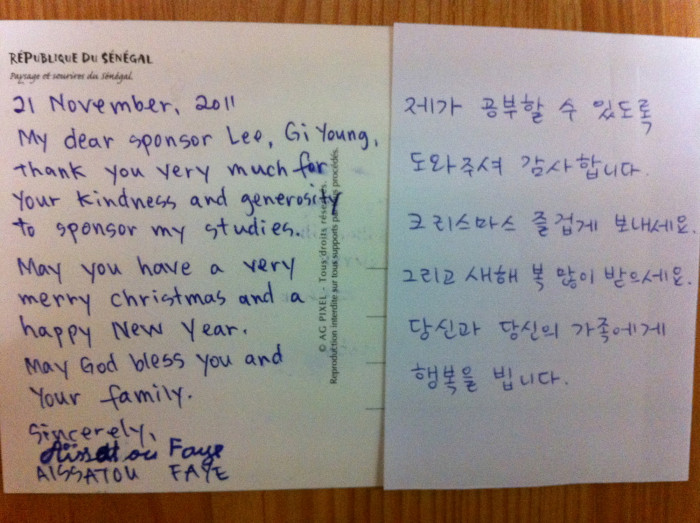 RÉPUBLIQUE DU SÉNÉGAL
Paysage et sourires du Sénégal
21 November, 2011
My dear sponsor Lee, Gi Young,
thank you very much for
your kindness and generosity
to sponsor my studies.
May you have a very
merry christmas and a
happy New Year.
May God bless you and
Your family.
Sincerely,
Aïssatou Faye
AISSATOU FAYE
© AG PIXEL - Tous droits réservés.
Reproduction interdite sur tous supports par tous procédés.
제가 공부할 수 있도록
도와주셔 감사합니다.
크리스마스 즐겁게 보내세요.
그리고 새해 복 많이 받으세요.
당신과 당신의 가족에게
행복을 빕니다.